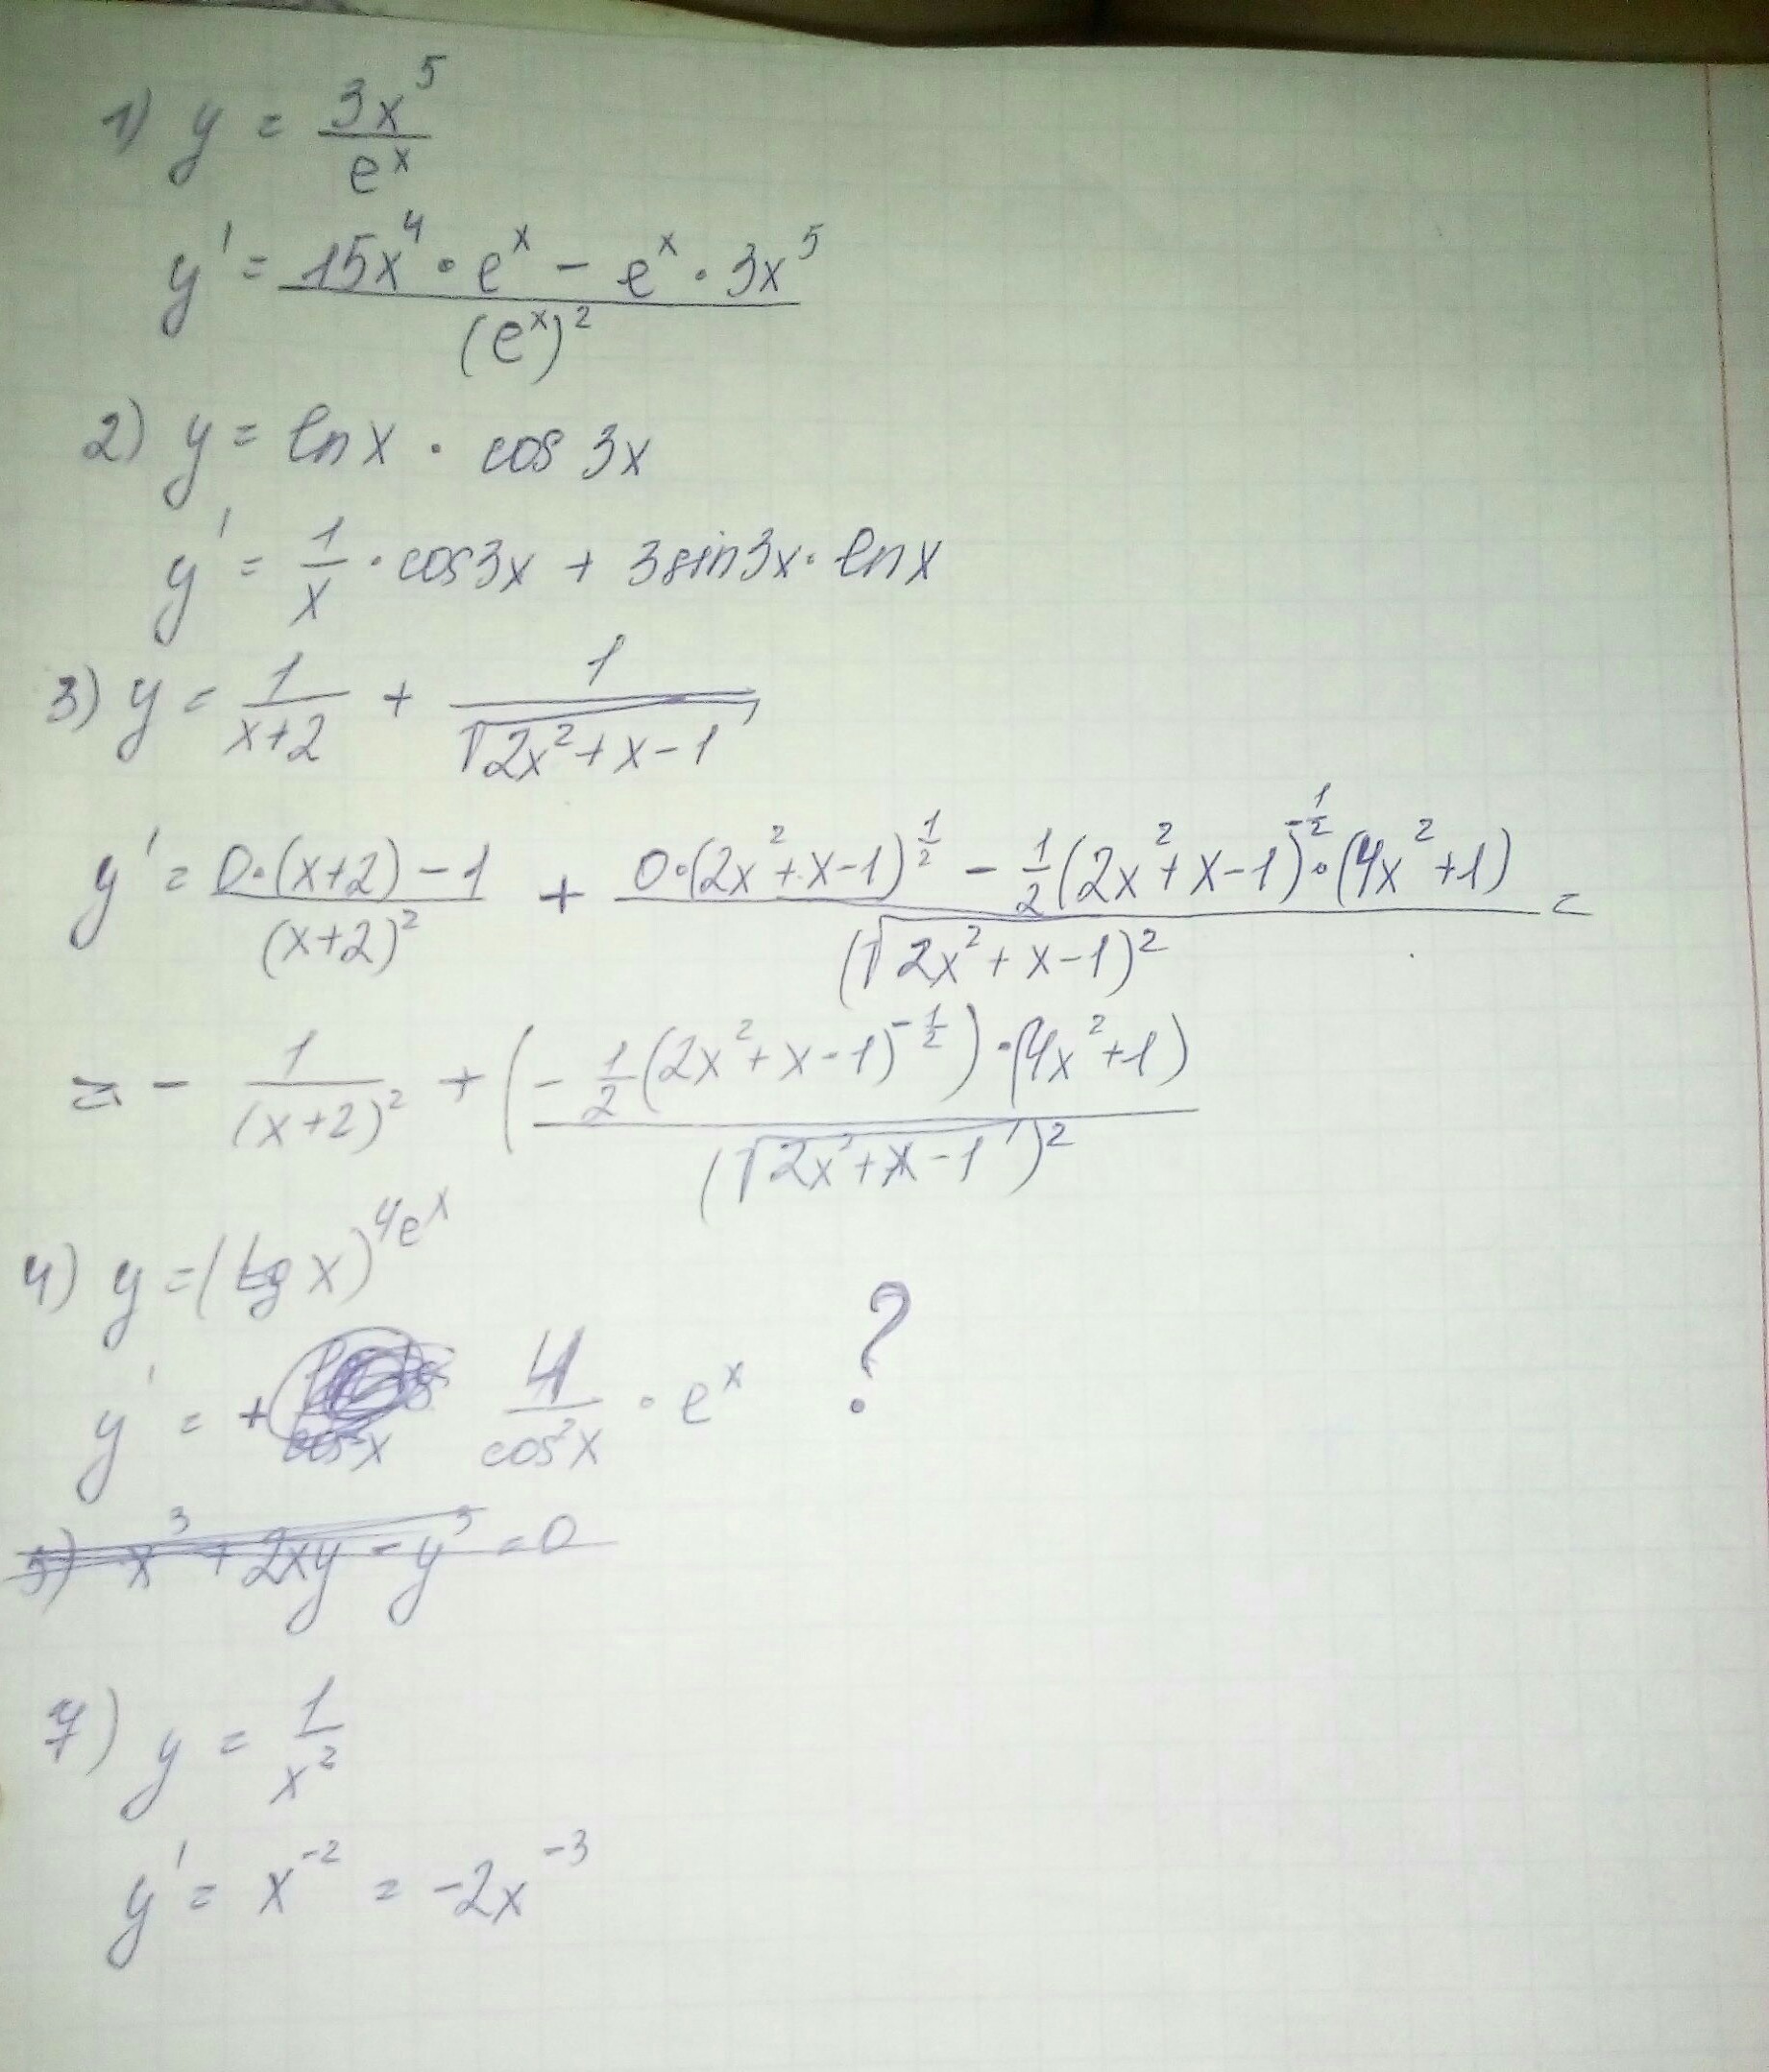 1) y = 3x⁵/eˣ
y' = (15x⁴ · eˣ − eˣ · 3x⁵)/(eˣ)²
2) y = ln x · cos 3x
y' = 1/x · cos3x + 3sin3x · ln x
3) y = 1/(x+2) + 1/√(2x²+x−1)
y' = (0·(x+2)−1)/(x+2)² + (0·(2x²+x−1)^(1/2) − 1/2(2x²+x−1)^(−1/2)·(4x²+1))/(√(2x²+x−1))² =
= − 1/(x+2)² + (−1/2(2x²+x−1)^(−1/2))·(4x²+1)/(√(2x²+x−1))²
4) y = (tg x)^(4eˣ)
y' = + cos²x 4/cos²x · eˣ ?
5) x³ + 2xy − y³ = 0
7) y = 1/x²
y' = x⁻² = −2x⁻³